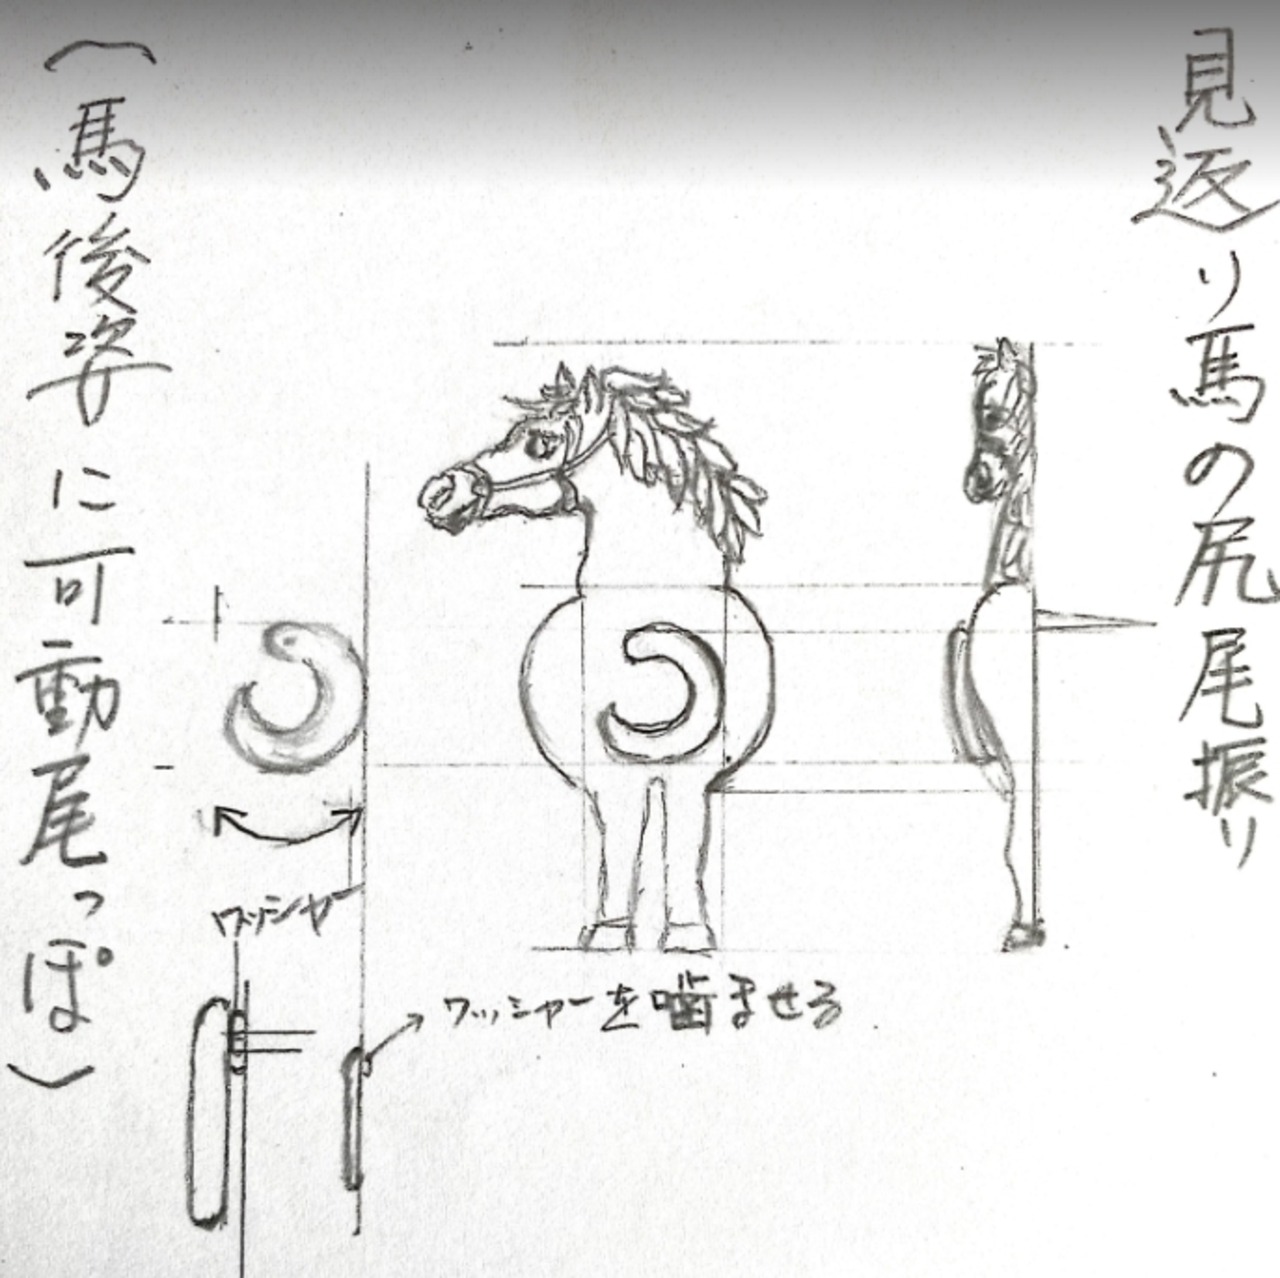 見返り馬の尻尾振り
(馬後姿に可動尾っぽ)
ワッシャー
ワッシャーを噛ませる